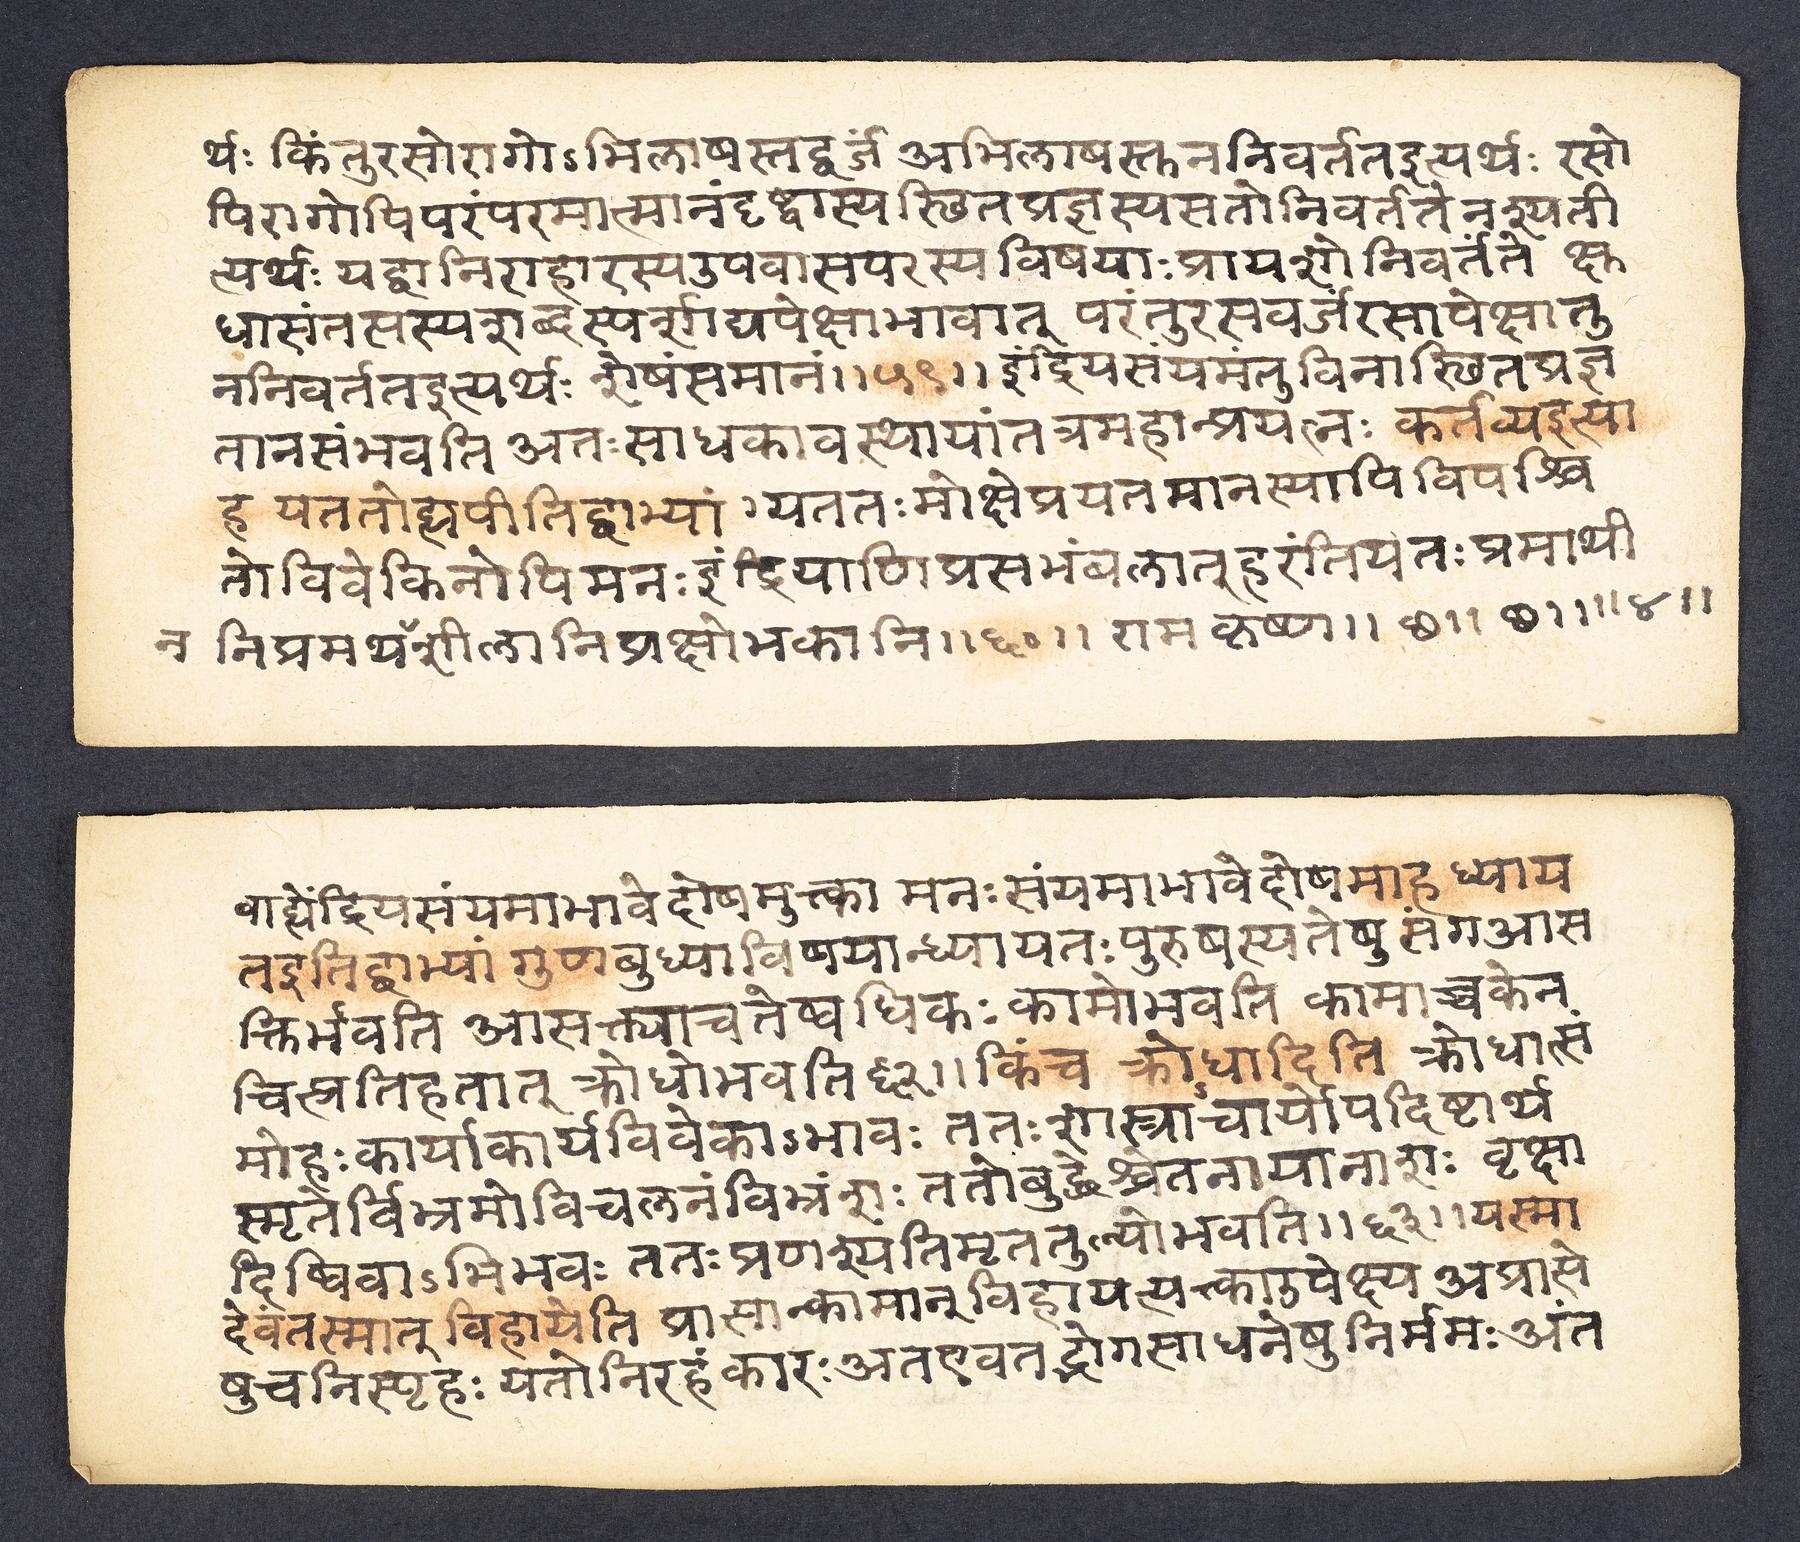 र्थः किंतुरसोरागोऽभिलाषस्तद्वर्जं अभिलाषस्तननिवर्ततइत्यर्थः रसो
पिरागोपिपरंपरमात्मानंदृष्ट्वास्यस्छितप्रज्ञस्यसतोनिवर्ततेनश्यती
त्यर्थः यद्वानिराहारस्यउपवासपरस्यविषयाःप्रायशोनिवर्तंते क्षु
धासंतप्तस्यशब्दस्पर्शाद्यपेक्षाभावात् परंतुरसवर्जंरसापेक्षातु
ननिवर्ततइत्यर्थः शेषंसमानं।।५९।। इंद्रियसंयमंतुविनास्छितप्रज्ञ
तानसंभवति अतःसाधकावस्थायांतत्रमहान्प्रयत्नः कर्तव्यइत्या
ह यततोह्यपीतिद्वाभ्यां यततःमोक्षेप्रयतमानस्यापिविपश्चि
तोविवेकिनोपिमनःइंद्रियाणिप्रसभंबलात्हरंतियतःप्रमाथी
न निप्रमथँशीलानिप्रक्षोभकानि।।६०।। रामकृष्ण।। छ।। छ।।।।४।।
बाह्येंद्रियसंयमाभावेदोषमुत्का मनःसंयमाभावेदोषमाह ध्याय
तइतिद्वाभ्यां गुणबुध्याविषयान्ध्यायतःपुरुषस्यतेषुसंगआस
क्तिर्भवति आसक्त्याचतेष्वधिकःकामोभवति कामाच्चकेन
चित्प्रतिहतात् क्रोधोभवति६२।।किंच क्रोधादिति क्रोधात्सं
मोहःकार्याकार्यविवेकाऽभावः ततःशास्त्राऽचार्योपदिष्टार्थ
स्मृतेर्विभ्रमोविचलनंविभ्रंशः ततोबुद्धेश्चेतनायानाशः वृक्षा
दिष्विवाऽभिभवः ततःप्रणश्यतिमृततुल्योभवति।।६३।।यस्मा
देवंतस्मात् विहायेति प्राप्तान्कामान् विहायत्यत्काउपेक्ष्य अप्राप्ते
षुचनिस्पृहः यतोनिरहंकारःअतएवतद्भोगसाधनेषुनिर्ममःअंत